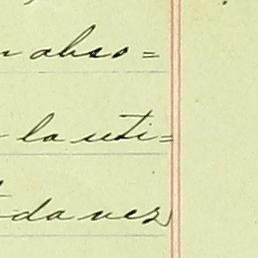 n abso=
la uti=
da vez